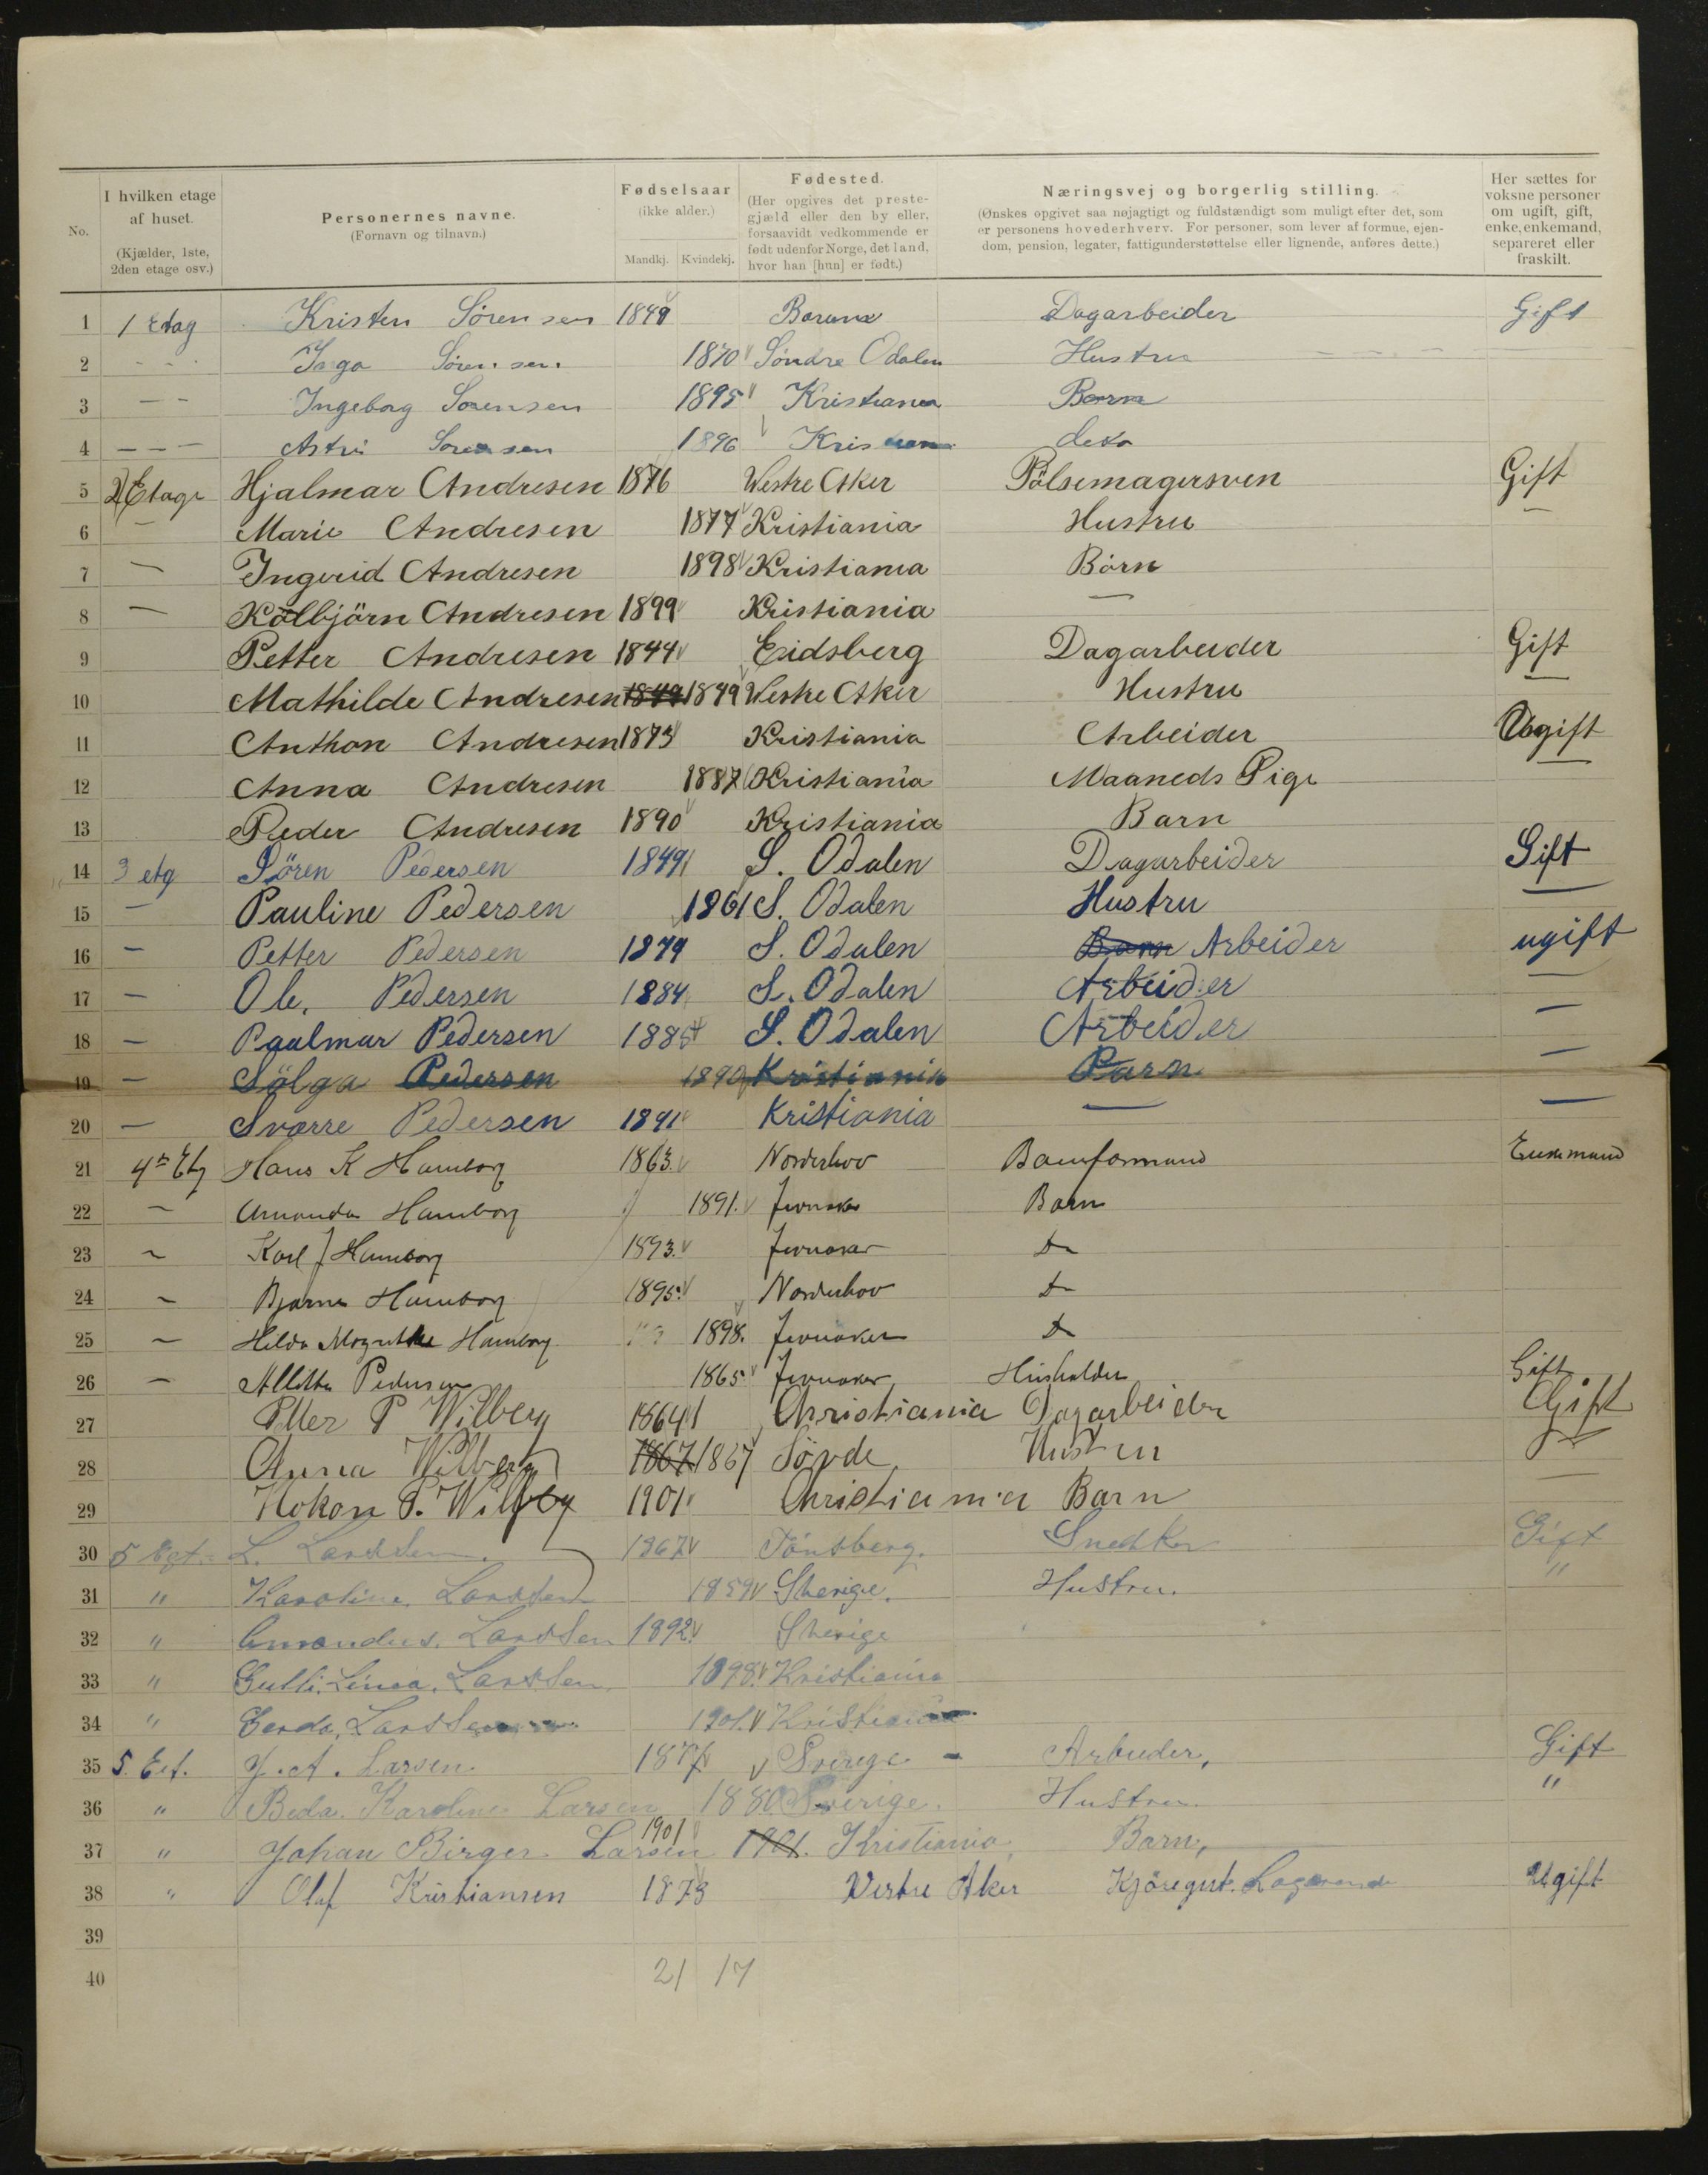 No.
I hvilken etage af huset.
(Kjælder, 1ste, 2den etage osv.)
Personernes navne.
(Fornavn og tilnavn.)
Fødselsaar
(ikke alder.)
Mandkj. Kvindekj.
Fødested.
(Her opgives det prestegjæld eller den by eller, forsaavidt vedkommende er født udenfor Norge, det land, hvor han [hun] er født.)
Næringsvej og borgerlig stilling.
(Ønskes opgivet saa nøjagtigt og fuldstændigt som muligt efter det, som er personens hovederhverv. For personer, som lever af formue, ejendom, pension, legater, fattigunderstøttelse eller lignende, anføres dette.)
Her sættes for voksne personer om ugift, gift, enke, enkemand, separeret eller fraskilt.
1 1 Etag Kristen Sörensen 1849 Dagarbeider Gift
2 - - - Inga Sörensen 1870 Söndre Odalen Hustru
3 - - Ingeborg Sorensen 1895 Kristiania Barn
4 - - - Astri Sorensen 1896 deto
5 2 Etage Hjalmar Andresen 1876 Westre Aker Pölsemagersven Gift
6 - Marie Andresen 1877 Kristiania Hustru -
7 - Ingerid Andresen 1898 Kristiania Börn
8 - Kolbjörn Andresen 1899 Kristiania -
9 Petter Andresen 1844 Eidsberg Dagarbeider Gift
10 Mathilde Andresen 1849 1849 Westre Aker Hustru -
11 Anthon Andresen 1873 Kristiania Arbeider Ugift
12 Anna Andresen 1887 Kristiania Maaneds Pige -
13 Peder Andresen 1890 Kristiania Barn
14 3 etg Sören Pedersen 1849 S. Odalen Dagarbeider Gift
15 - Pauline Pedersen 1861 S. Odalen Hustru -
16 - Petter Pedersen 1879 S. Odalen Barn Arbeider ugift
17 - Ole. Pedersen 1884 S. Odalen Arbeider -
18 - Paulmar Pedersen 1885 S. Odalen Arbeider -
19 - Sölga Pedersen 1890 Kristiania Barn -
20 - Sværre Pedersen 1891 Kristiania - -
21 4de Etg Hans K Hamborg 1863. Norderhov Enkemand
22 - Amanda Hamborg 1891. Jevnaker Barn
23 - Karl J Hamborg 1893. Jevnaker Do
24 - Bjarne Hamborg 1895. Norderhov Do
25 - Hilda Hamborg 1898. Jevnaker Do
26 - Pedersen 1865 Jevnaker Husholder Gift
27 Petter P Wilberg 1864 Christiania Dagarbeider Gift
28 Anna Wilberg 1867 1867 Hustru
29 Hokon P. Wilberg 1901 Christiania Barn -
30 5 Egt. L. Larssen. 1867 Tönsberg. Snedker Gift
31 " Karoline. Larssen 1859 Sverige. Hustru. "
32 " Amandus. Larssen 1892 Sverige
33 " Gulli. Linea. Larssen. 1898. Kristiania
34 " Gerda. Larssen 1901. Kristiania
35 5. Et. J. A. Larsen. 1877 Sverige - Arbeider, Gift
36 " Beda. Karoline Larsen 1880 Sverige. Hustru. "
37 " Johan Birger. Larsen 1901 1901. Kristiania, Barn,
38 " Olaf Kristiansen 1873 Vestre Aker Kjöregut. Ugift
39
40 21 17